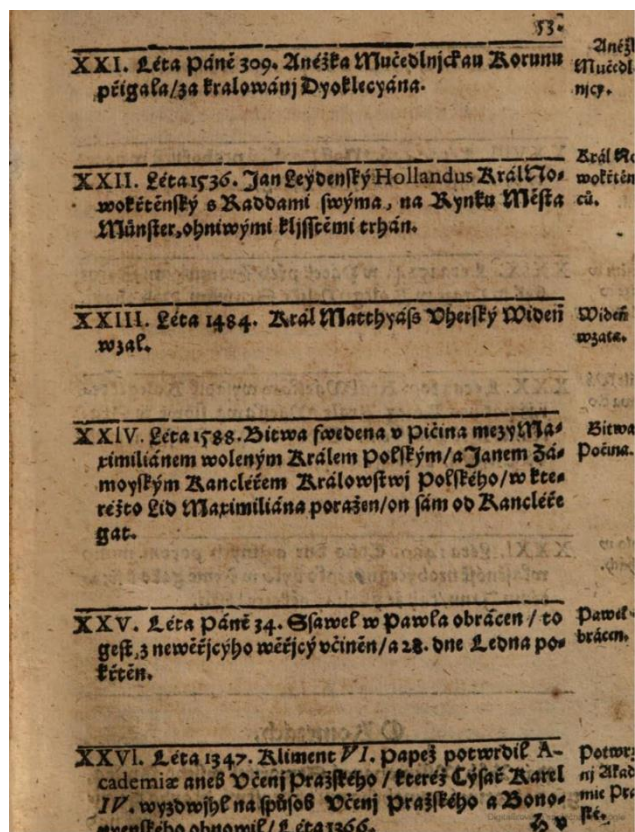 53.
XXI. Léta Páně 309. Anéžka Mučedlnjckau Korunu
přigala/za kralowánj Dyoklecyána.
Mučedl
njcy.
XXII. Léta 1536. Jan Leydenský Hollandus Král No-
wokřtěnský s Raddami swýma, na Rynku Města
Münster, ohniwými kljsstěmi trhán.
Král No
wokřtěn
ců.
XXIII. Léta 1484. Král Matthyáss Vherský Wideň
wzal.
Wideň
wzata.
XXIV. Léta 1588. Bitwa swedena v Pičina mezy Ma-
ximiliánem woleným Králem Polským/a Janem Za-
moyským Kancléřem Králowstwj Polského/w kte-
réžto Lid Maximiliána poražen/on sám od Kancléře
gat.
Bitwa
Počina.
XXV. Léta Páně 34. Ssawel w Pawla obrácen / to
gest, z newěřjcýho wěřjcý včiněn/a 28. dne Ledna po-
křtěn.
Pawel
brácen.
XXVI. Léta 1347. Kliment VI. Papež potwrdil A-
cademiæ aneb Včenj Pražského / kteréž Cýsař Karel
IV. wyzdwjhl na spůsob Včenj Pražského a Bono-
nyenského obnowil/ Léta 1366.
Potwrz
nj Akad
mie Pra
ské.